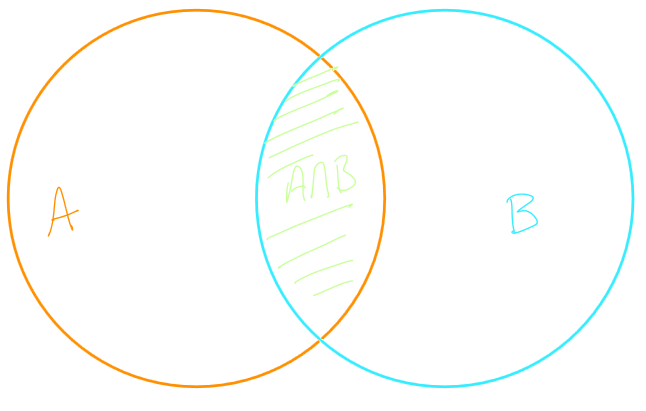 A
A∩B
B